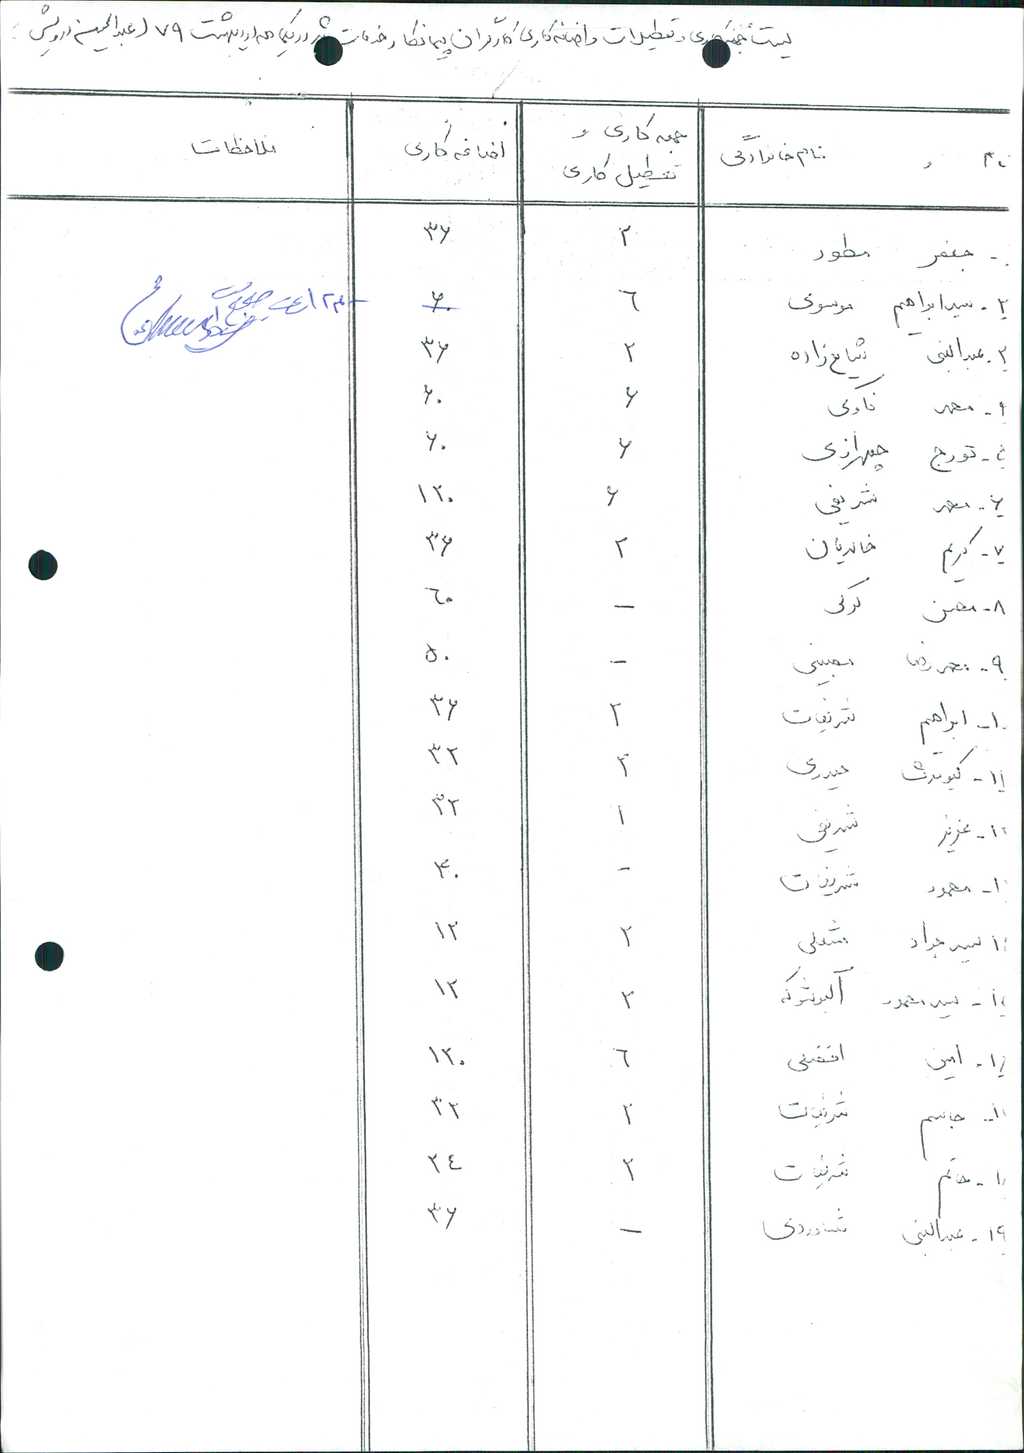 لیست جمعه‌کاری و تعطیلات و اضافه‌کاری کارگران پیمانکار خدمات شهر در یکماهه اردیبهشت ۷۹ (عبدالحسین درویش
نام و نام خانوادگی جمعه کاری و تعطیل کاری اضافه کاری ملاحظات
۱- جعفر مطور ۲ ۳۶
۲- سید ابراهیم موسوی ٦ ۶۰
۳- عبدالنبی شیاع زاده ۲ ۳۶
۴- محمد ۶ ۶۰
۵- تورج چهرازی ۶ ۶۰
۶- محمد شریفی ۶ ۱۲۰
۷- کریم خالدیان ۲ ۳۶
۸- محسن کرکی — ٦۰
۹- محمدرضا مبینی — ۵۰
۱۰- ابراهیم شریفات ۲ ۳۶
۱۱- کیومرث حیدری ۲ ۳۲
۱۲- عزیز شریفی ۱ ۳۲
۱۳- محمود شریفات - ۴۰
۱۴- سید جواد ۲ ۱۲
۱۵- سید محمود آلبوشوکه ۲ ۱۲
۱۶- امین ٦ ۱۲۰
۱۷- جاسم شریفات ۲ ۳۲
۱۸- حاتم شریفات ۲ ۲٤
۱۹- عبدالنبی — ۳۶